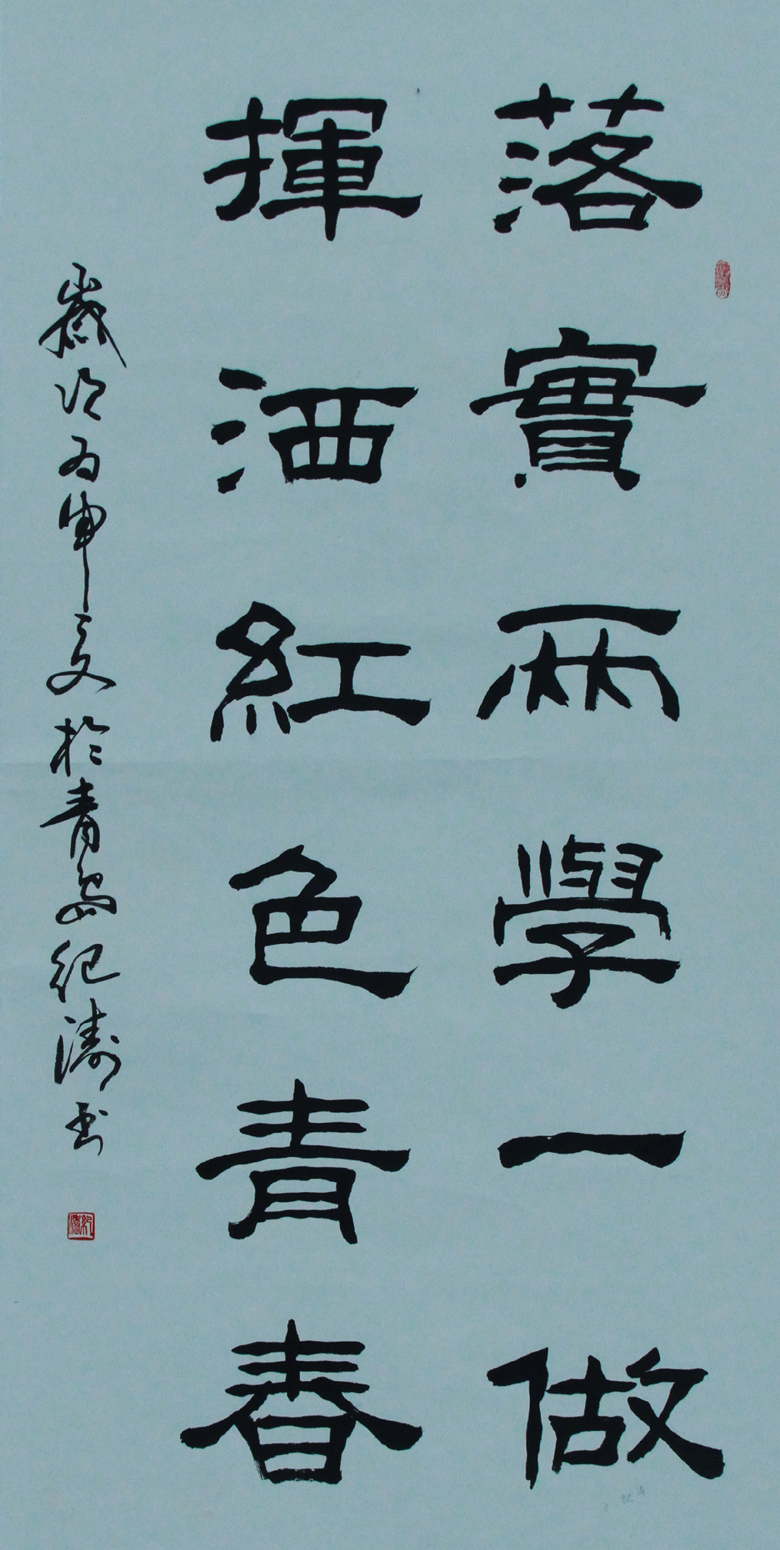 落實兩學一做
揮洒紅色青春
歲次丙申之夂於青島紀濤书